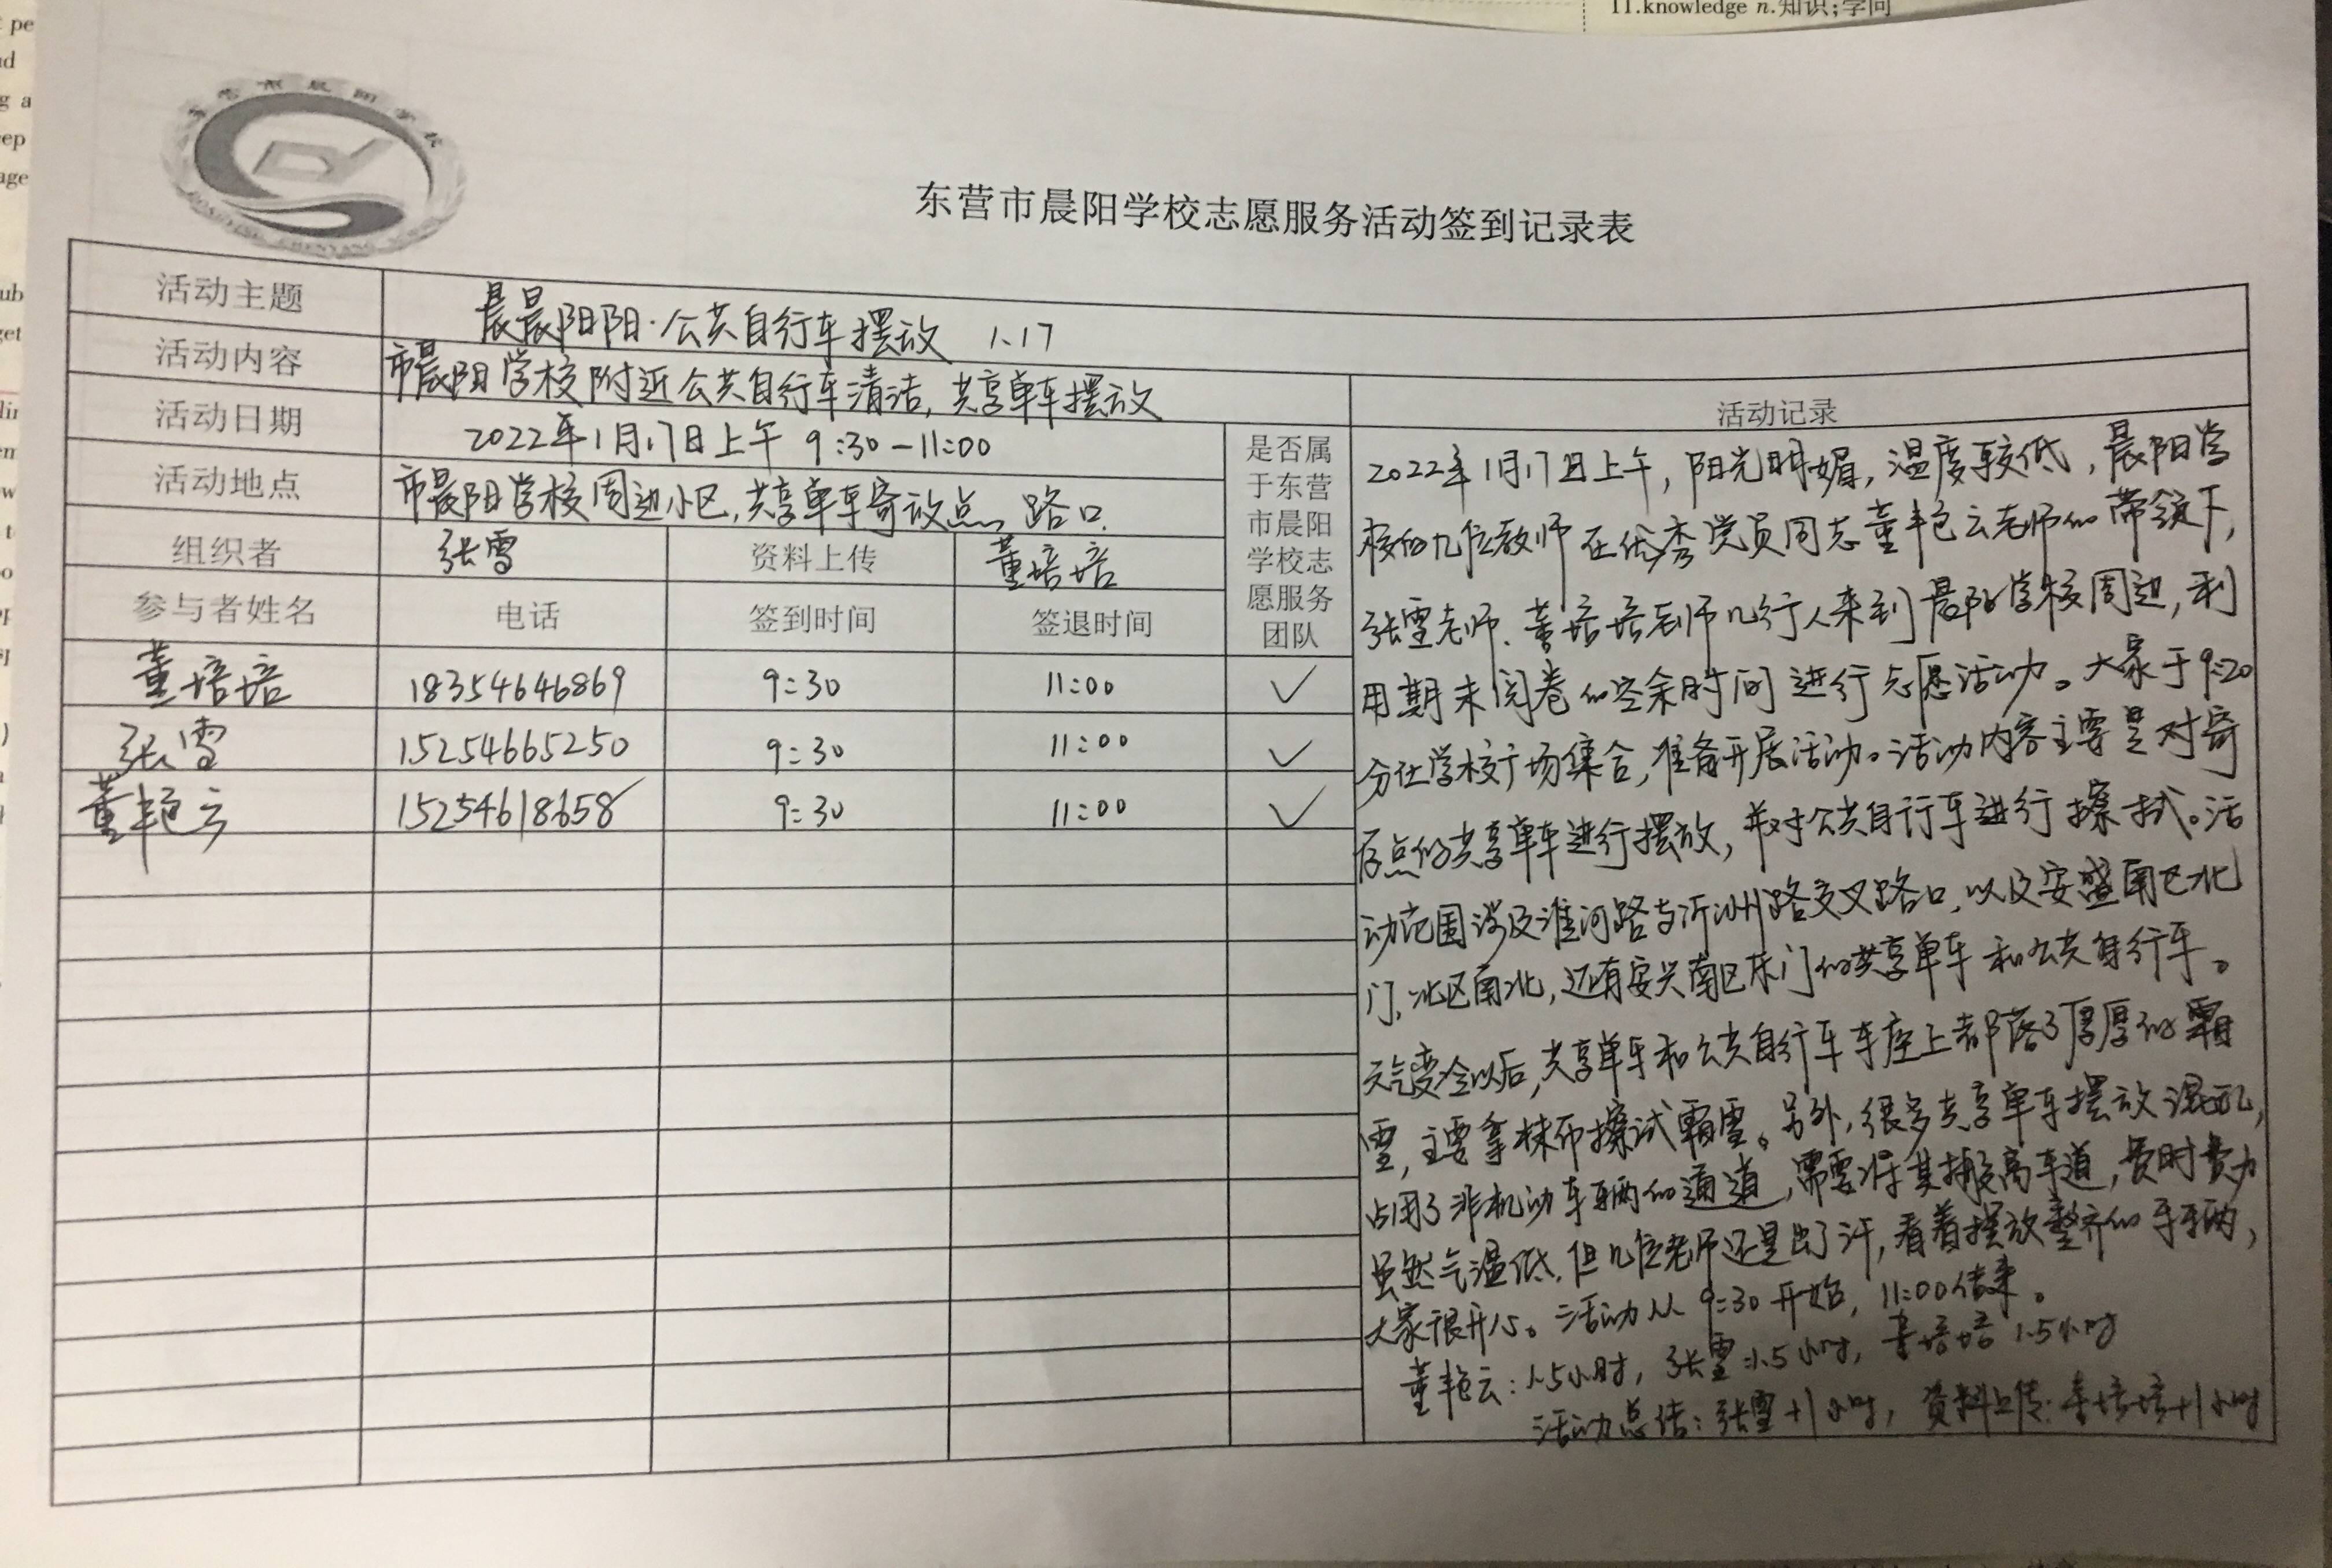 11.knowledge n.知识;学问
东营市晨阳学校
DONGYING CHENYANG SCHOOL
东营市晨阳学校志愿服务活动签到记录表
活动主题 晨晨阳阳·公共自行车摆放 1.17
活动内容 市晨阳学校附近公共自行车清洁,共享单车摆放
活动日期 2022年1月17日上午 9:30-11:00
活动地点 市晨阳学校周边小区,共享单车寄放点、路口.
组织者 张雪 资料上传 董培培
参与者姓名 电话 签到时间 签退时间
是否属
于东营
市晨阳
学校志
愿服务
团队
董培培 18354646869 9:30 11:00 ✓
张雪 15254665250 9:30 11:00 ✓
董艳云 15254618658 9:30 11:00 ✓
活动记录
2022年1月17日上午,阳光明媚,温度较低,晨阳学
校的几位教师在优秀党员同志董艳云老师的带领下,
张雪老师、董培培老师几行人来到晨阳学校周边,利
用期末阅卷的空余时间进行志愿活动。大家于9:20
分在学校广场集合,准备开展活动。活动内容主要是对寄
存点的共享单车进行摆放,并对公共自行车进行擦拭。活
动范围涉及淮河路与沂州路交叉路口,以及安盛南区北
门,北区南北,还有安兴南区东门的共享单车和公共自行车。
天气变冷以后,共享单车和公共自行车车座上都落了厚厚的霜
雪,主要拿抹布擦试霜雪。另外,很多共享单车摆放混乱,
占用了非机动车辆的通道,需要将其搬离车道,费时费力
虽然气温低,但几位老师还是出了汗,看着摆放整齐的车辆,
大家很开心。活动从9:30开始,11:00结束。
董艳云:1.5小时,张雪:1.5小时,董培培1.5小时
活动总结:张雪+1小时,资料上传:董培培+1小时